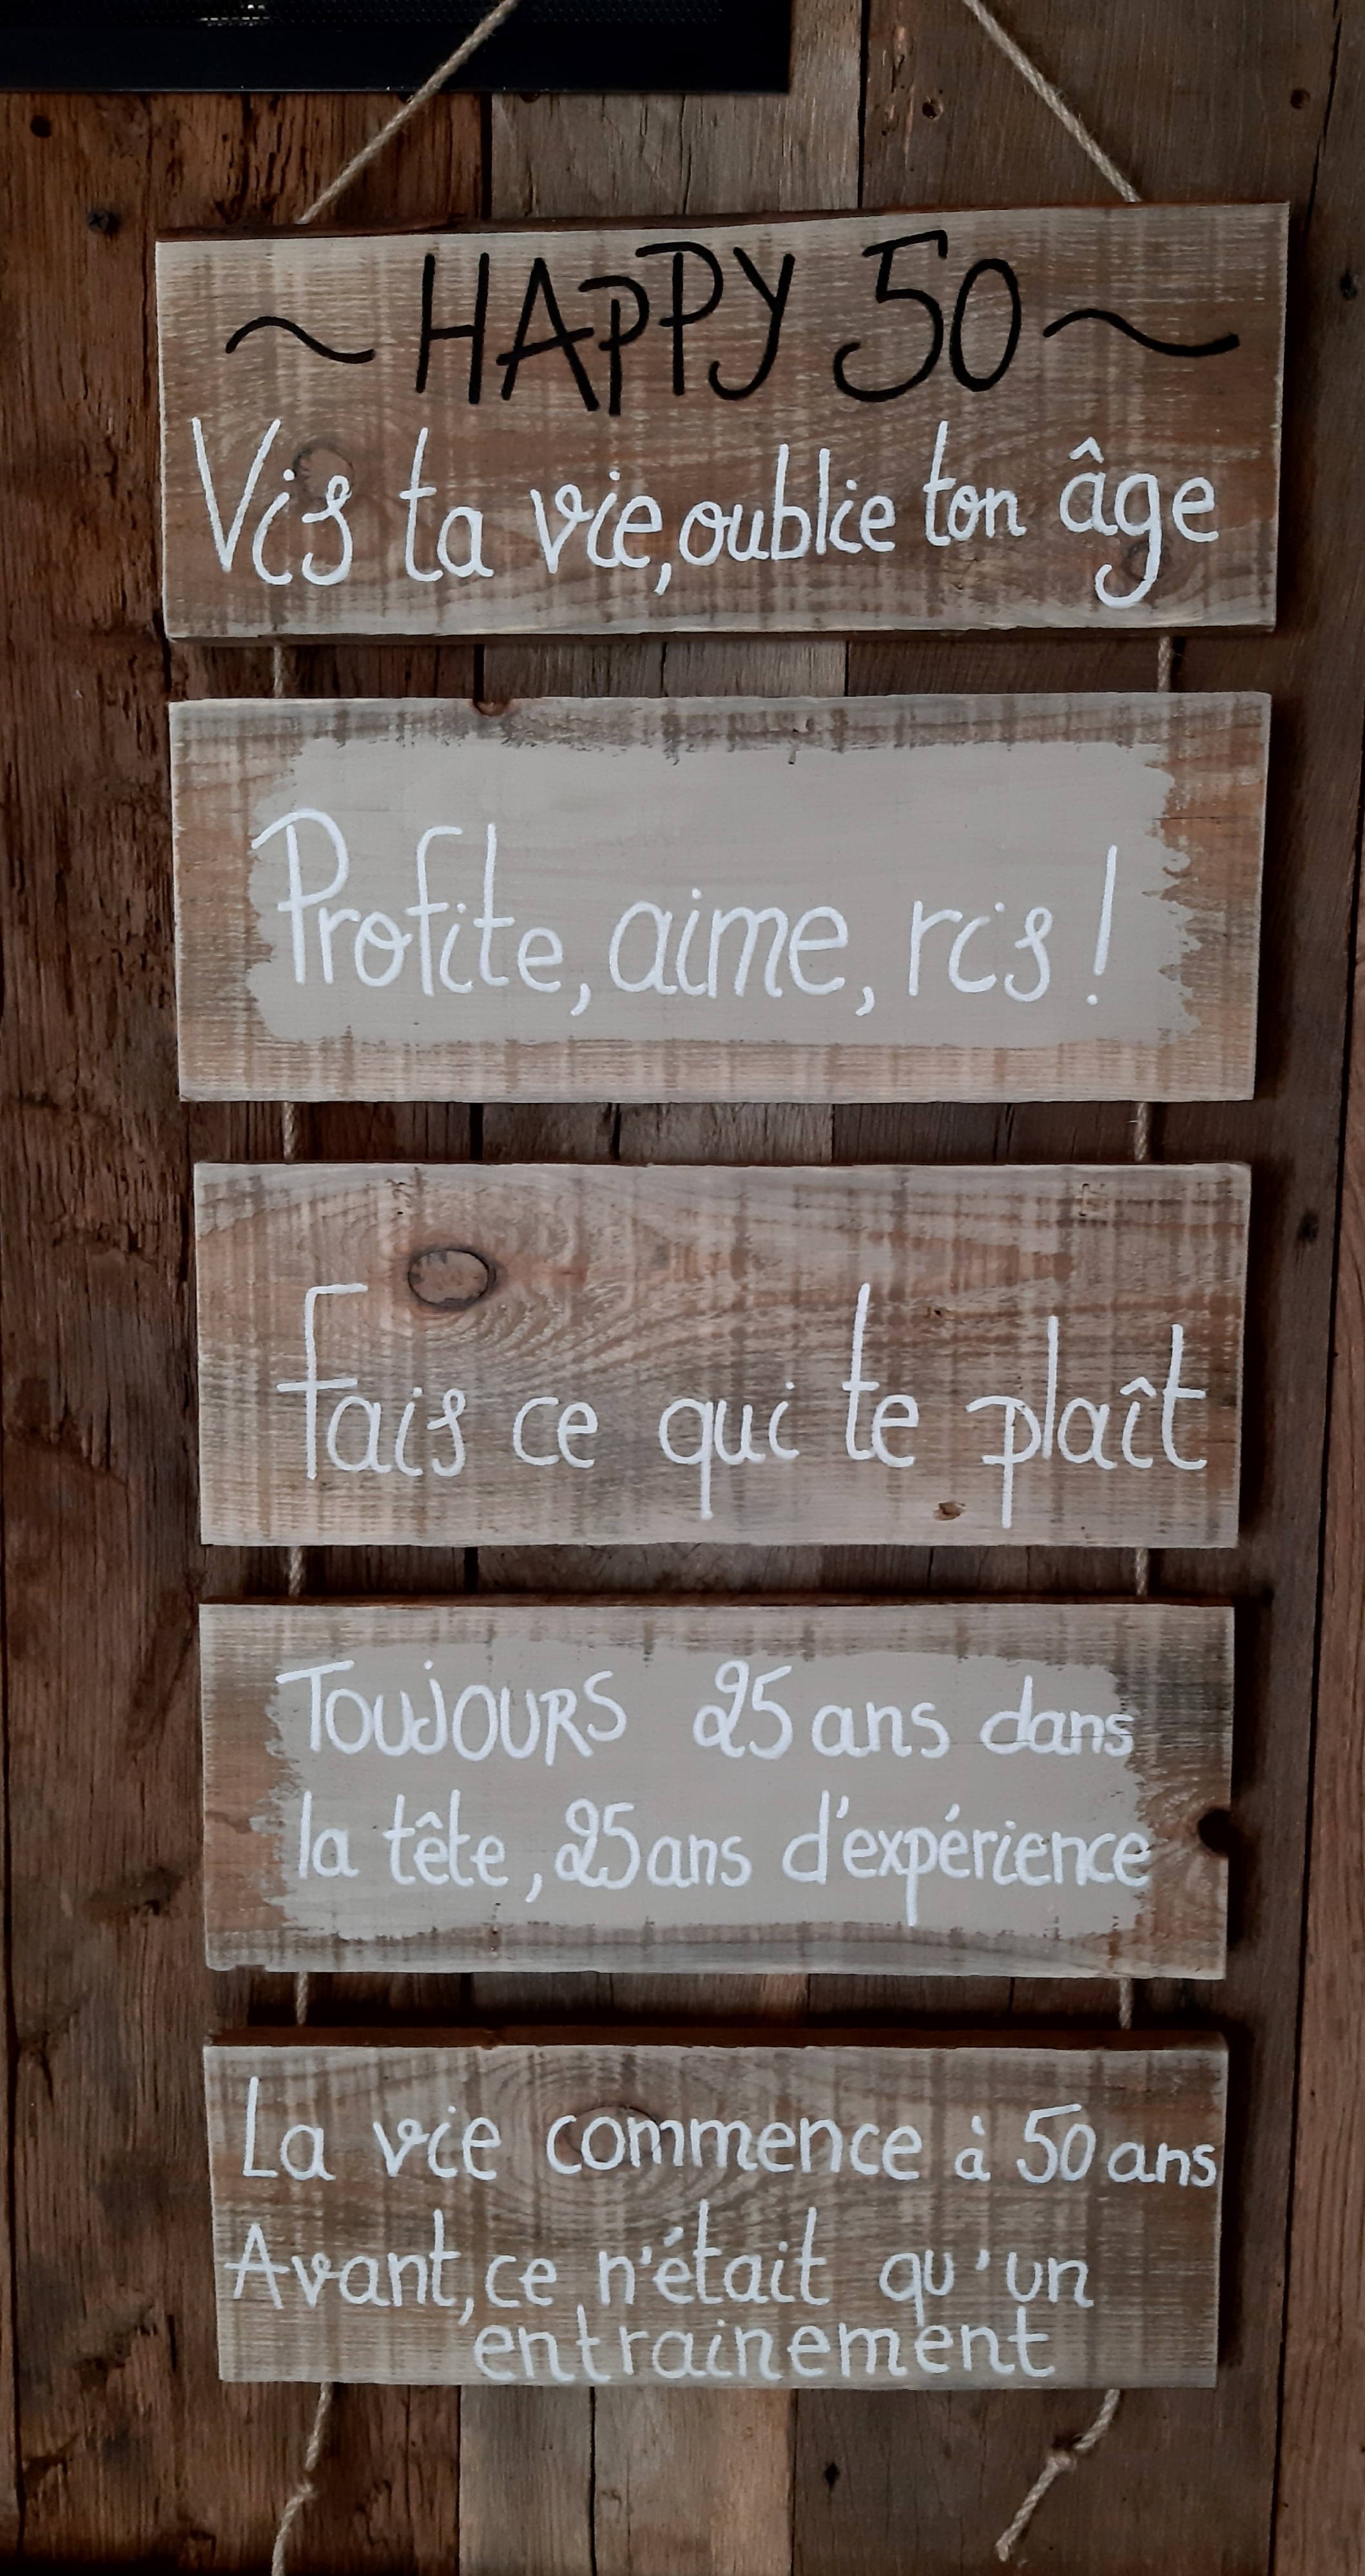 ~ HAPPY 50 ~
Vis ta vie, oublie ton âge
Profite, aime, ris !
Fais ce qui te plaît
TOUJOURS 25 ans dans
la tête, 25 ans d'expérience
La vie commence à 50 ans
Avant, ce n'était qu'un
entrainement